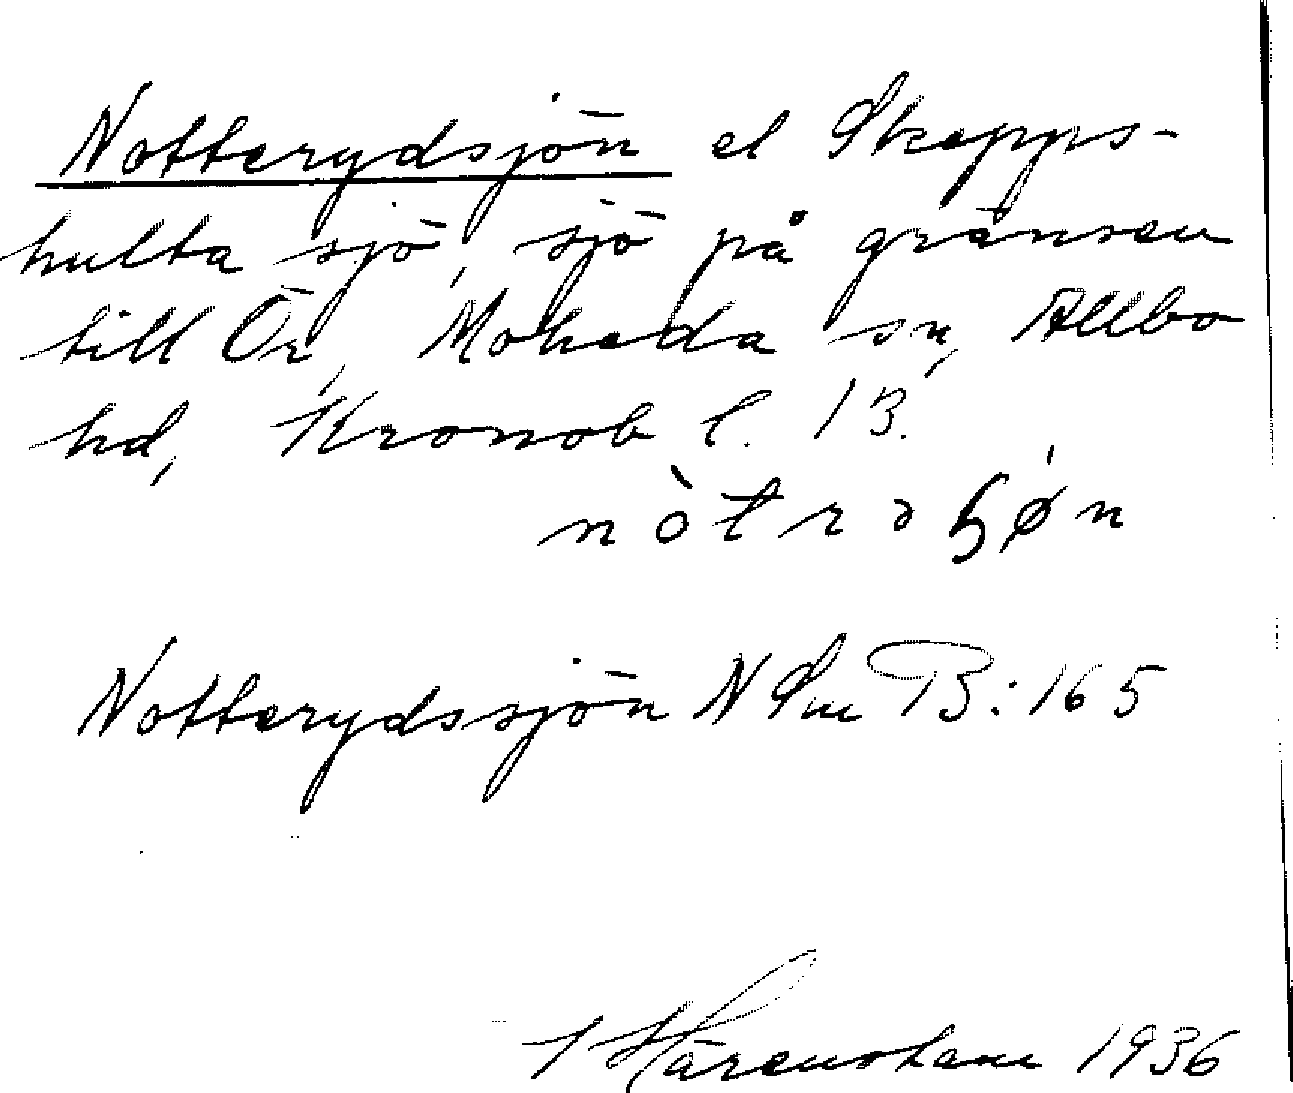 Notterydsjön el Skepps-
hulta sjö, sjö på gränsen
till Ör, Moheda sn, Allbo
hd, Kronob l. 13.
nòtrəɧøn
Notterydssjön N Sm B:165
1936